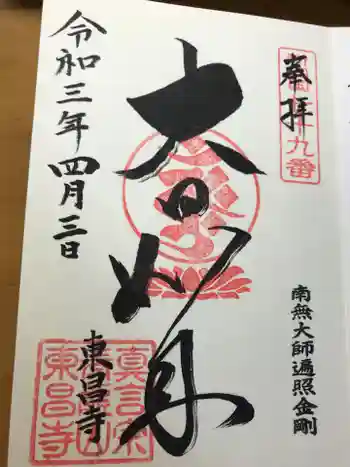 奉拝
南無大師遍照金剛
大日如来
東昌寺
令和三年四月三日
九番
真言宗
東昌寺